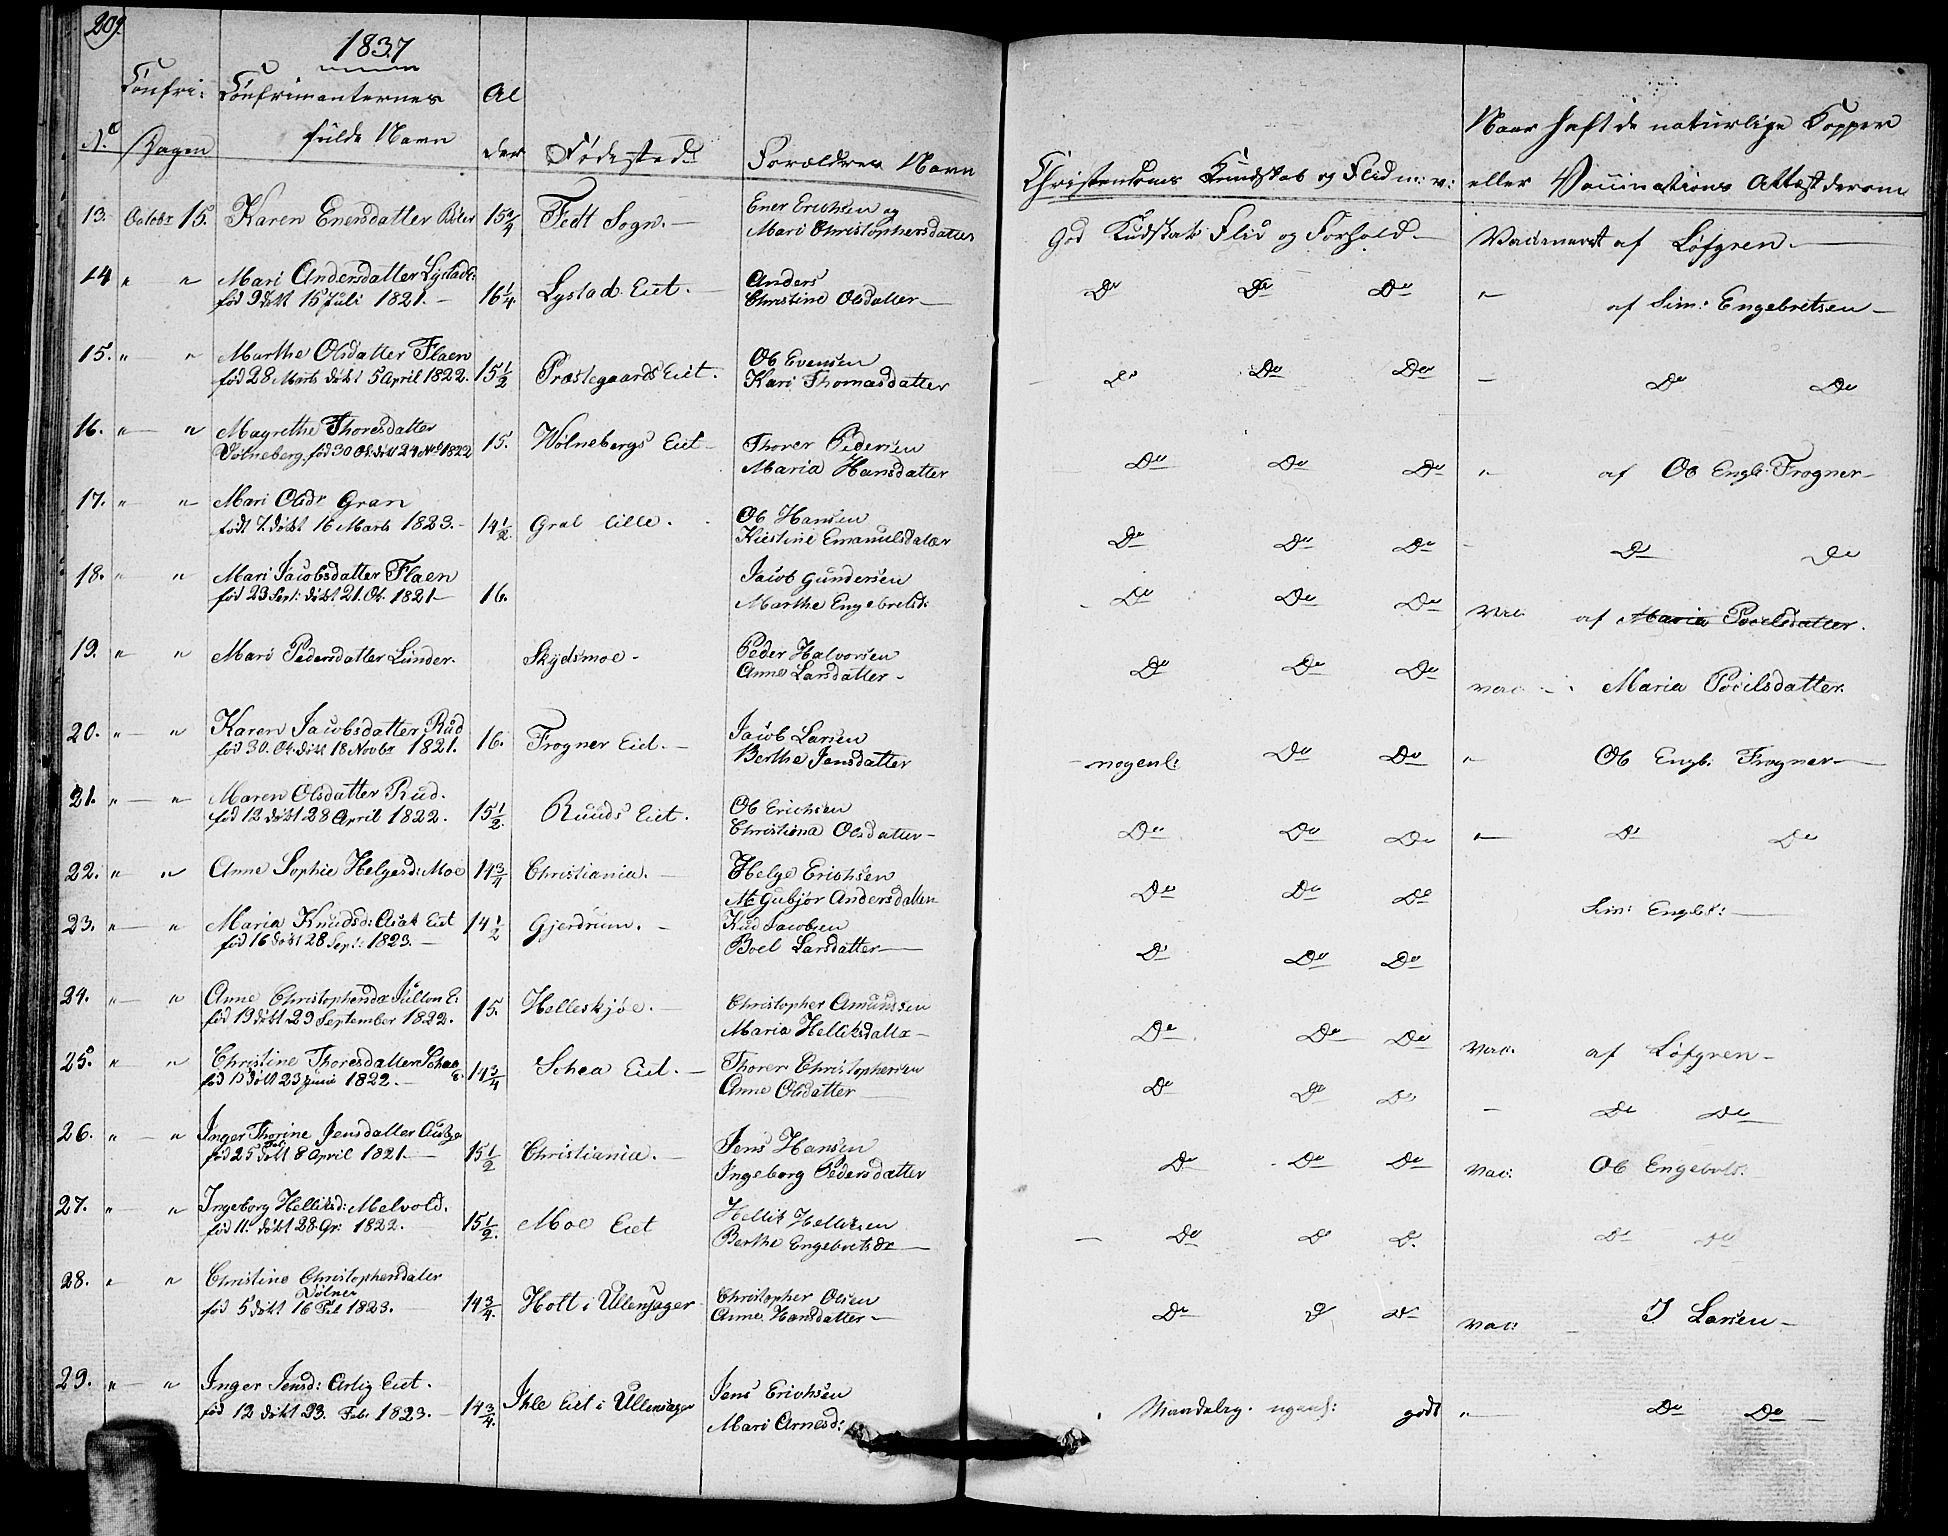 209.
1837
Confri: Confirmanternes Al
No Dagen fulde Navn der Fødested Forældres Navn
Christendoms Kundskab og Flid m: v:
Naar haft de naturlige Kopper
eller Vaccinations Attest derom
13. Octobr 15. Karen Enersdatter 15 3/4 Fedt Sogn. — Ener Erichsen og
Mari Christophersdatter
God Kudskab Flid og Forhold — Vaccineret af Løfgren. —
14 " " Mari Andersdatter Lystad 16 1/4 Lystad Eiet. — Anders
fød 9 døbt 15 Juli 1821. — Christine Olsdatter —
Do Do Do " af Sim: Engebretsen —
15. " " Marthe Olsdatter Flaen 15 1/2 Præstegaards Eiet. Ole Evensen
fød 28 Marts døbt 5 April 1822. Kari Thomasdatter
Do Do Do — Do Do
16. " " Magrethe Thoresdatter 15. Wølnebergs Eiet — Thorer Pedersen
Vølneberg, fød 30 Ok. døbt 24 Nov 1822 Maria Hansdatter
Do Do Do " af Ole Engb: Frogner —
17. " " Mari Olsdr Gran 14 1/2. Gral lille. Ole Hansen
født 7. døbt 16 Marts 1823. — Kiestine Emanuelsdatter
Do Do Do — Do Do
18. " " Mari Jacobsdatter Flaen 16. Jacob Gundersen
fød 23 Sept: døbt 21. Ok. 1821 — Marthe Engebretsd:
Do Do Do Vac: af Maria Poulsdatter.
19. " " Mari Pedersdatter Lunder. Skydsmoe — Peder Halvorsen
Anne Larsdatter —
Do Do Do Vac: Maria Poulsdatter
20. " " Karen Jacobsdatter Rud 16. Frogner Eid. — Jacob Larsen
fød 30. Ok. døbt 18 Novbr 1821. Berthe Jensdatter
nogenl: Do Do " Ole Engb: Frogner —
21. " " Maren Olsdatter Rud. 15 1/2. Ruuds Eiet. Ole Erichsen
fød 12 døbt 28 April 1822. Christiana Olsdatter —
Do Do Do " Do Do
22. " " Anne Sophie Helgesd: Moe 14 3/4 Christiania. — Helge Erichsen
Gubjør Andersdatter
Do Do Do Sim: Engbt: —
23. " " Maria Knudsd: Asak Eiet 14 1/2 Gjerdrum. — Kud Jacobsen
fød 16 døbt 28 Sept: 1823. — Boel Larsdatter —
Do Do Do
24. " " Anne Christophersda Julton E: 15. Helleskjøe. — Christopher Amundsen
fød 19 døbt 29 September 1822. Maria Helliksdatter —
Do Do Do Vac: af Løfgren —
25. " " Christine Thoresdatter Schea E: 14 3/4 Schea Eiet. — Thorer Christophersen
døbt 23 Juni 1822. — Anne Olsdatter —
Do Do Do — Do Do
26. " " Inger Thorine Jensdatter 15 1/2 Christiania. — Jens Hansen
fød 25 Feb døbt 8 April 1821 — Ingeborg Pedersdatter
Do Do Do Vac: Ole Engebrts:
27. " " Ingeborg Helliksd: Melvold. 15 1/2. Moe Eiet Hellik Helliksen
fød 11. døbt 28 1822. — Berthe Engebretsdr —
Do Do Do Do Do
28. " " Christine Christophersdater 14 3/4. Holt i Ullensager Christopher Olsen
Dølner
fød 5 døbt 16 Feb 1823. — Anne Hansdatter —
Do Do Do Vac: — J Larsen —
29. " " Inger Jensd: Arlig Eiet. 14 3/4. Ihle Eiet i Ullensager Jens Erichsen
fød 12 døbt 23. Feb. 1823. — Mari Arnesd:
godt " Do Do —